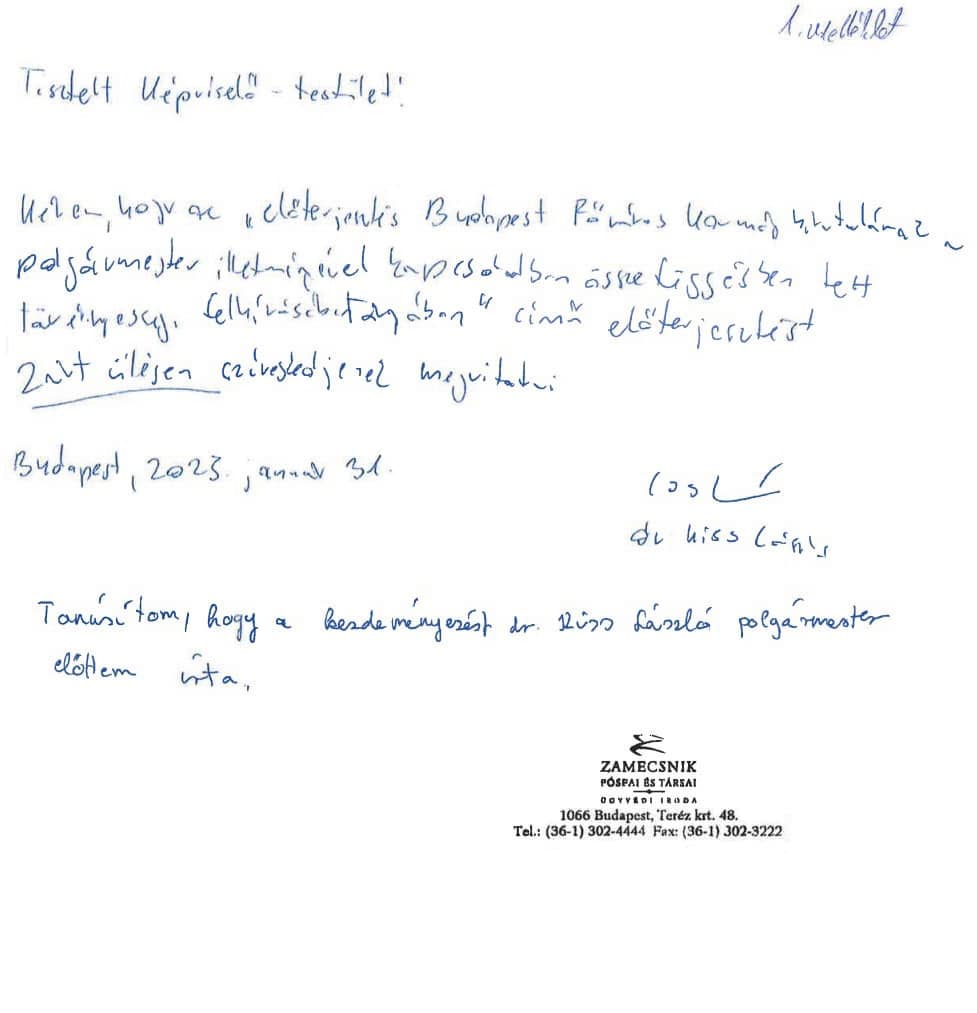 1. melléklet
Tisztelt Képviselő-testület!
Kérem, hogy az „előterjesztés Budapest Főváros Kormányhivatalának a
polgármester illetményével kapcsolatban összefüggésben tett
törvényességi felhívása tárgyában" című előterjesztést
Zárt ülésen szíveskedjenek megvitatni
Budapest, 2023. január 31.
dr Kiss László
Tanúsítom, hogy a kezdeményezést dr. Kiss László polgármester
előttem írta.
ZAMECSNIK
PÓSPAI ÉS TÁRSAI
ÜGYVÉDI IRODA
1066 Budapest, Teréz krt. 48.
Tel.: (36-1) 302-4444 Fax: (36-1) 302-3222